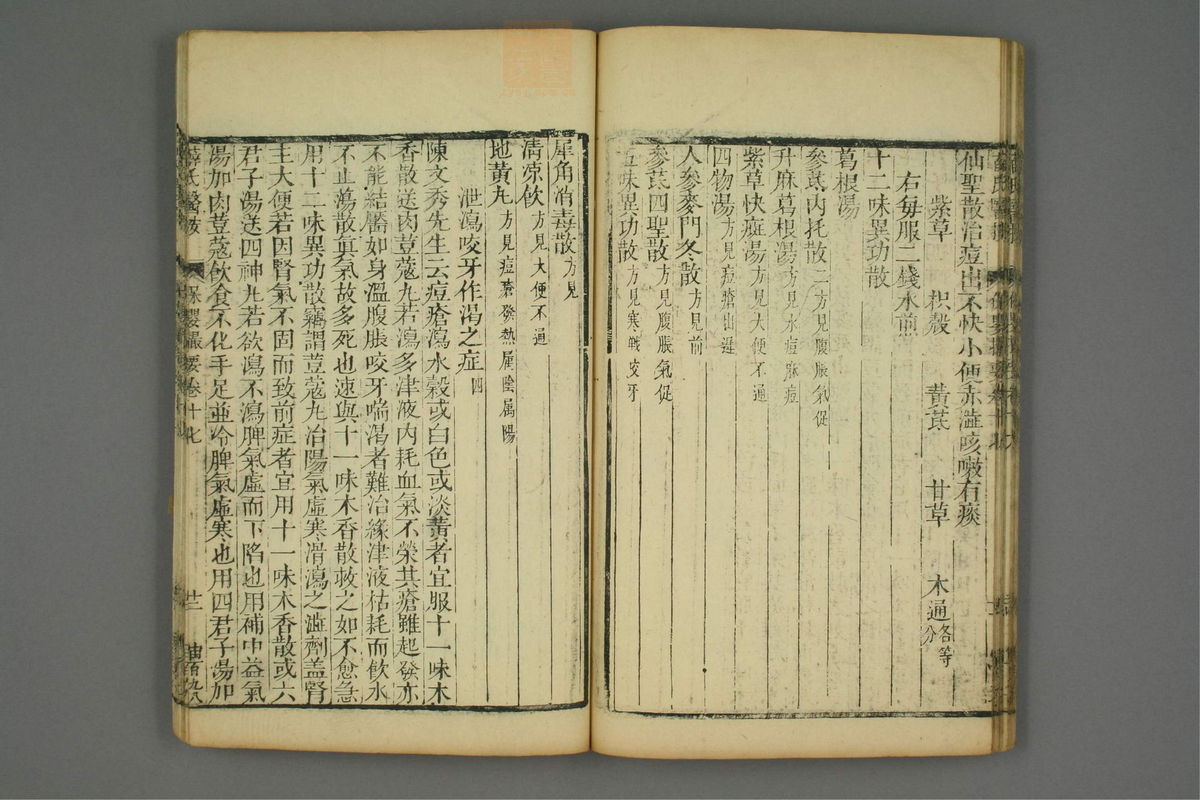 仙聖散治痘出不快小便赤澁咳嗽有痰
紫草 枳殼 黃芪 甘草 木通各等分
右每服二錢水煎
十二味異功散
葛根湯
參芪內托散二方見腹脹氣促
升麻葛根湯方見水痘麻痘
紫草快癍湯方見大便不通
四物湯方見痘瘡出遲
人參麥門冬散方見前
參芪四聖散方見腹脹氣促
五味異功散方見寒戰咬牙
犀角消毒散方見
清凉飲方見大便不通
地黃丸方見痘瘡發熱屬陰屬陽
泄瀉咬牙作渴之症四
陳文秀先生云痘瘡瀉水穀或白色或淡黃者宜服十一味木
香散送肉荳蔻丸若瀉多津液內耗血氣不榮其瘡雖起發亦
不能結靨如身溫腹脹咬牙喘渴者難治緣津液枯耗而飲水
不止蕩散眞氣故多死也速與十一味木香散救之如不愈急
用十二味異功散竊謂荳蔻丸治陽氣虛寒滑瀉之澁劑盖腎
主大便若因腎氣不固而致前症者宜用十一味木香散或六
君子湯送四神丸若欲瀉不瀉脾氣虛而下陷也用補中益氣
湯加肉荳蔻飲食不化手足並冷脾氣虛寒也用四君子湯加
薛氏醫按 保嬰撮要卷十七 廿二